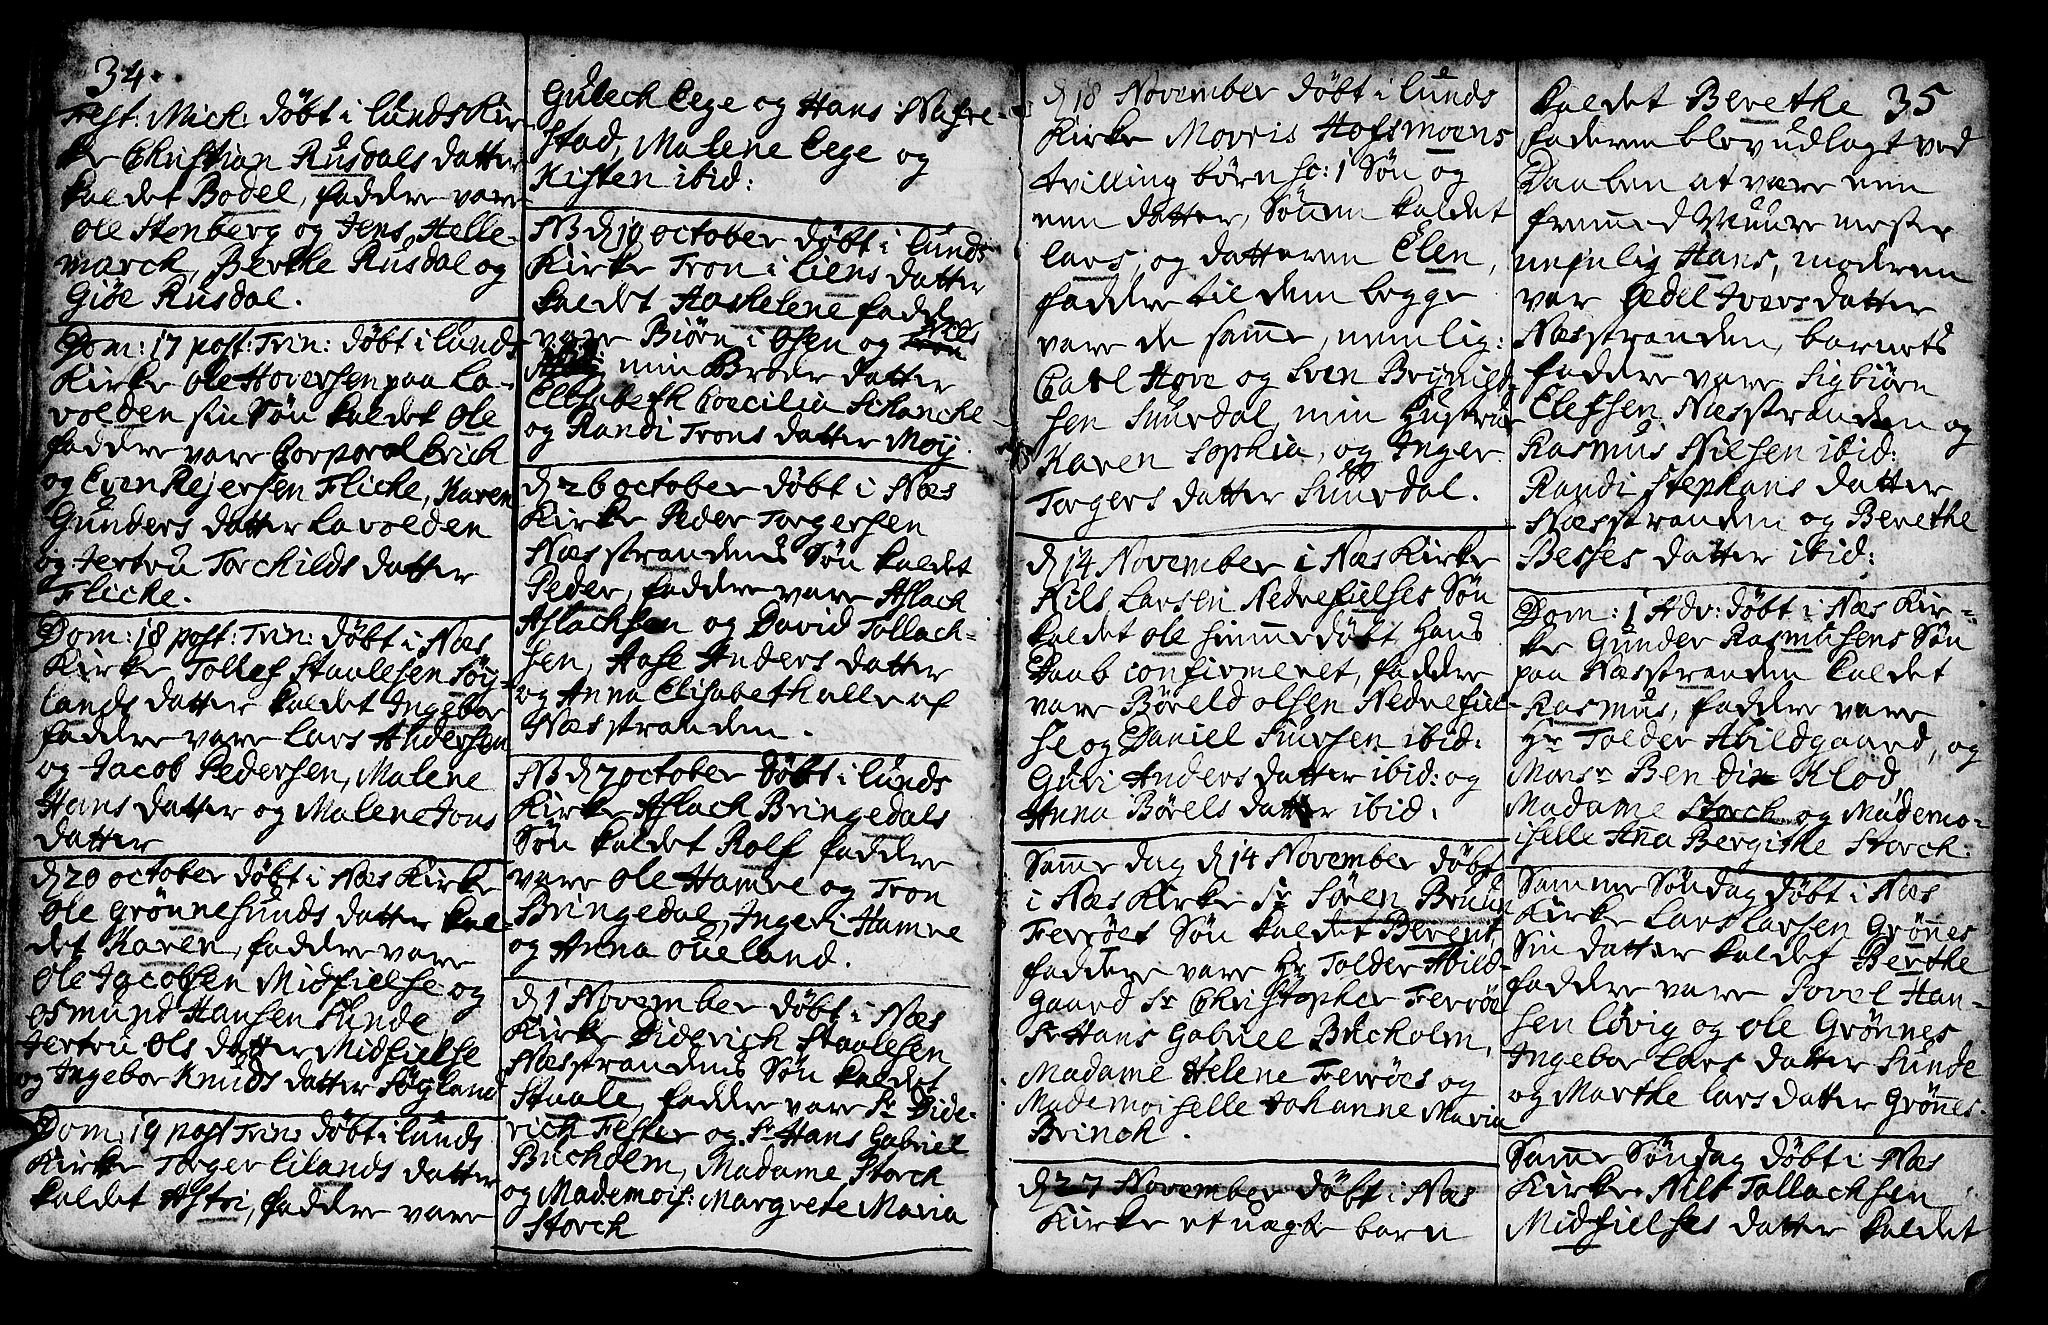 34.
Fest: Mich: døbt i Lunds Kir-
ke Christian Rusdals datter
kaldet Bodel, faddre vare
Ole Stenberg og Jens Helle-
marck, Berthe Rusdal og
Giøe Rusdal.
Dom: 17 post: Trin: døbt i Lunds
Kirke Ole Hoversen paa La-
volden sin Søn kaldet Ole
faddre vare Corporal Erich
og Even Rejersen Flicke, Karen
Gunders datter Lavolden
og Jertru Torchilds datter
Flicke.
Dom: 18 post: Trin: døbt i Næs
Kirke Tollef Staalesen Søy-
lands datter kaldet Ingebor
faddre vare Lars Andersen
og Jacob Pedersen, Malene
Hans datter og Malene Jons
datter
d 20 October døbt i Næs Kirke
Ole Grønnesunds datter kal-
det Karen, faddre vare
Ole Jacobsen Midfielse og
Osmund Hansen Sunde,
Jertru Ols datter Midfielse
og Ingebor Knuds datter Søgland
Dom: 19 post Trin: døbt i Lunds
Kirke Torger Eilands datter
kaldet Astri, faddre vare
Gulech Eege og Hans
stad, Malene Eege og
Kisten ibid:
NB d 19 October døbt i Lunds
Kirke Tron i Liens datter
kaldet Aashelene fadd
vare Biørn i Osen og
min Broer datter
Elisabeth Coecilia Schancke
og Randi Trons datter Moij.
d 26 October døbt i Næs
Kirke Peder Torgersen
Næsstrandens Søn kaldet
Peder, faddre vare Aslach
Aslachsen og David Tollach-
sen, Aase Anders datter
og Anna Elisabeth alle af
Næsstranden.
NB d 7 October døbt i Lunds
Kirke Aslach Bringedals
Søn kaldet Rolf faddre
vare Ole Hamre og Tron
Bringedal, Ingeri Hamre
og Anna Oueland.
d 1 November døbt i Næs
Kirke Diderich Staalesen
Næsstrandens Søn kaldet
Staale, faddre vare Sr Dide-
rich Fester og Sr Hans Gabriel
Bucholm, Madame Storch
og Mademois: Margrete Maria
Storch
d 18 November døbt i Lunds
Kirke Morris Hofsmoens
tvilling børn sc: 1 Søn og
een datter, Sønen kaldet
Lars, og datteren Elen,
faddre til dem begge
vare de samme, nemlig:
Carl Hove og Sven Brynild-
sen Suurdal, min Hustrue
Karen Sophia, og Inger
Torgers datter Suurdal.
d 14 November i Næs Kirke
Nils Larsen Nedrefielses Søn
kaldet Ole hiemme døbt Hans
Daab confirmeret, faddre
vare Børeld Olsen Nedrefiel-
se og Daniel Siursen ibid:
Guri Anders datter ibid: og
Anna Børels datter ibid:
Samme dag d 14 November døbt
i Næs Kirke Sr Søren Bruun
Ferrøes Søn kaldet Berent,
faddere vare Hr Tolder Abild-
gaard Sr Christopher Ferrøe
Sr Hans Gabriel Bucholm,
Madame Helene Ferrøes og
Mademoiselle Johanne Maria
Brinch.
d 27 November døbt i Næs
Kirke et uægte barn
35
kaldet Berethe
faderen blev udlagt ved
Daaben at være een
fremmed Muure mester
nemlig Hans, moderen
var Cedel Ivers datter
Næsstranden, barnets
faddre vare Sigbiørn
Elefsen Næsstranden og
Rasmus Nilsen ibid:
Randi Stephans datter
Næsstranden og Berethe
Besses datter ibid:
Dom: 1 Adv: døbt i Næs Kir-
ke Gunder Rasmusens Søn
paa Næsstranden kaldet
Rasmus, faddre vare
Hr Tolder Abildgaard, og
Monsr Bendix Klod,
Madame Storch og Mademo-
iselle Ana Bergithe Storch.
Samme Søndag døbt i Næs
Kirke Lars Larsen Grønnes
sin datter kaldet Berthe
faddre vare Povel Han-
sen Løvig og Ole Grønnes
Ingebor Lars datter Sunde
og Marthe Lars datter Grønnes.
Samme Søndag døbt i Næs
Kirke Nils Tollachsen
Midfielses datter kaldet